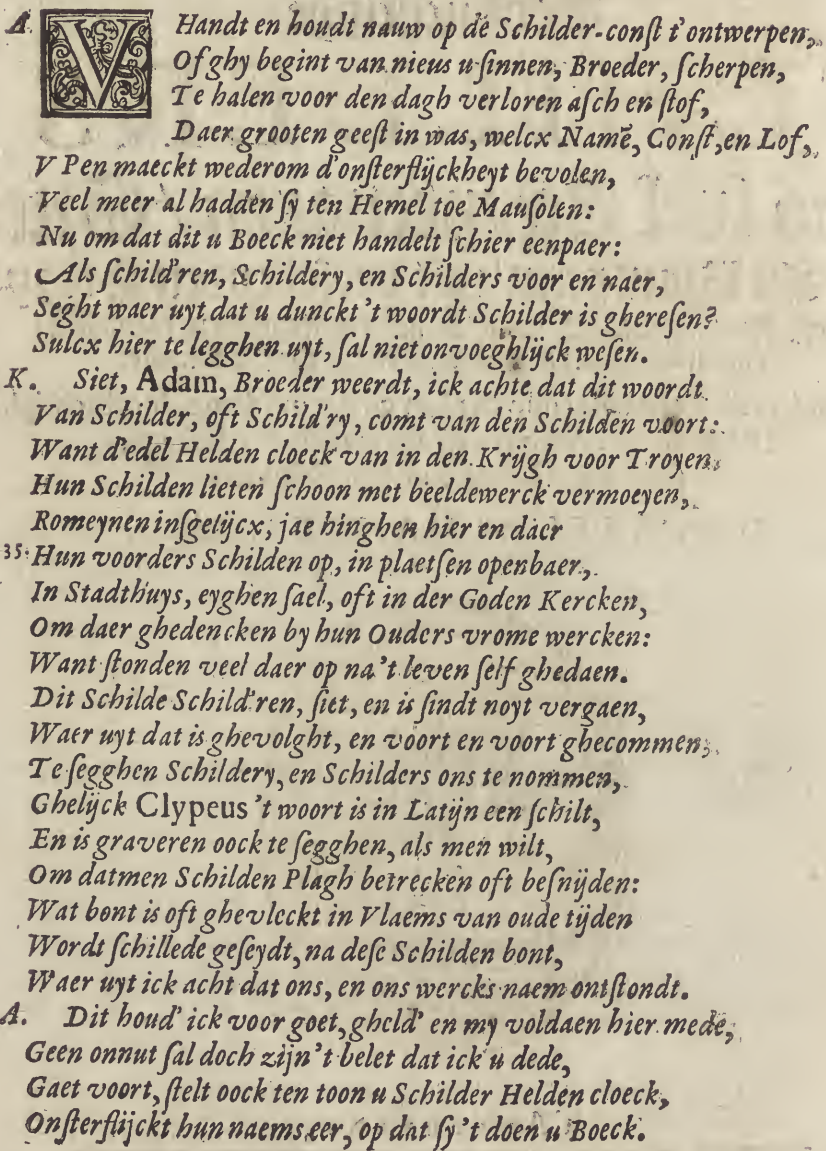 A. VHandt en houdt nauw op de Schilder-conſt t'ontwerpen,
Of ghy begint van nieus u ſinnen, Broeder, ſcherpen,
Te halen voor den dagh verloren aſch en ſtof,
Daer grooten geeſt in was, welcx Namē, Conſt, en Lof,
V Pen maeckt wederom d'onſterflijckheyt bevolen,
Veel meer al hadden ſy ten Hemel toe Mauſolen:
Nu om dat dit u Boeck niet handelt ſchier eenpaer:
Als ſchild'ren, Schildery, en Schilders voor en naer,
Seght waer uyt dat u dunckt 't woordt Schilder is ghereſen?
Sulcx hier te legghen uyt, ſal niet onvoeghlijck weſen.
K. Siet, Adam, Broeder weerdt, ick achte dat dit woordt
Van Schilder, oft Schild'ry, comt van den Schilden voort:
Want d'edel Helden cloeck van in den Krijgh voor Troyen,
Hun Schilden lieten ſchoon met beeldewerck vermoeyen,
Romeynen inſgelijcx, jae hinghen hier en daer
35 Hun voorders Schilden op, in plaetſen openbaer,
In Stadthuys, eyghen ſael, oft in der Goden Kercken,
Om daer ghedencken by hun Ouders vrome wercken:
Want ſtonden veel daer op na 't leven ſelf ghedaen.
Dit Schilde Schild'ren, ſiet, en is ſindt noyt vergaen,
Waer uyt dat is ghevolght, en voort en voort ghecommen,
Te ſegghen Schildery, en Schilders ons te nommen,
Ghelijck Clypeus 't woort is in Latijn een ſchilt,
En is graveren oock te ſegghen, als men wilt,
Om datmen Schilden Plagh betrecken oft beſnijden:
Wat bont is oft ghevleckt in Vlaems van oude tijden
Wordt ſchillede geſeydt, na deſe Schilden bont,
Waer uyt ick acht dat ons, en ons wercks naem ontſtondt.
A. Dit houd' ick voor goet, gheld' en my voldaen hier mede,
Geen onnut ſal doch zijn 't belet dat ick u dede,
Gaet voort, ſtelt oock ten toon u Schilder Helden cloeck,
Onſterflijckt hun naems eer, op dat ſy 't doen u Boeck.